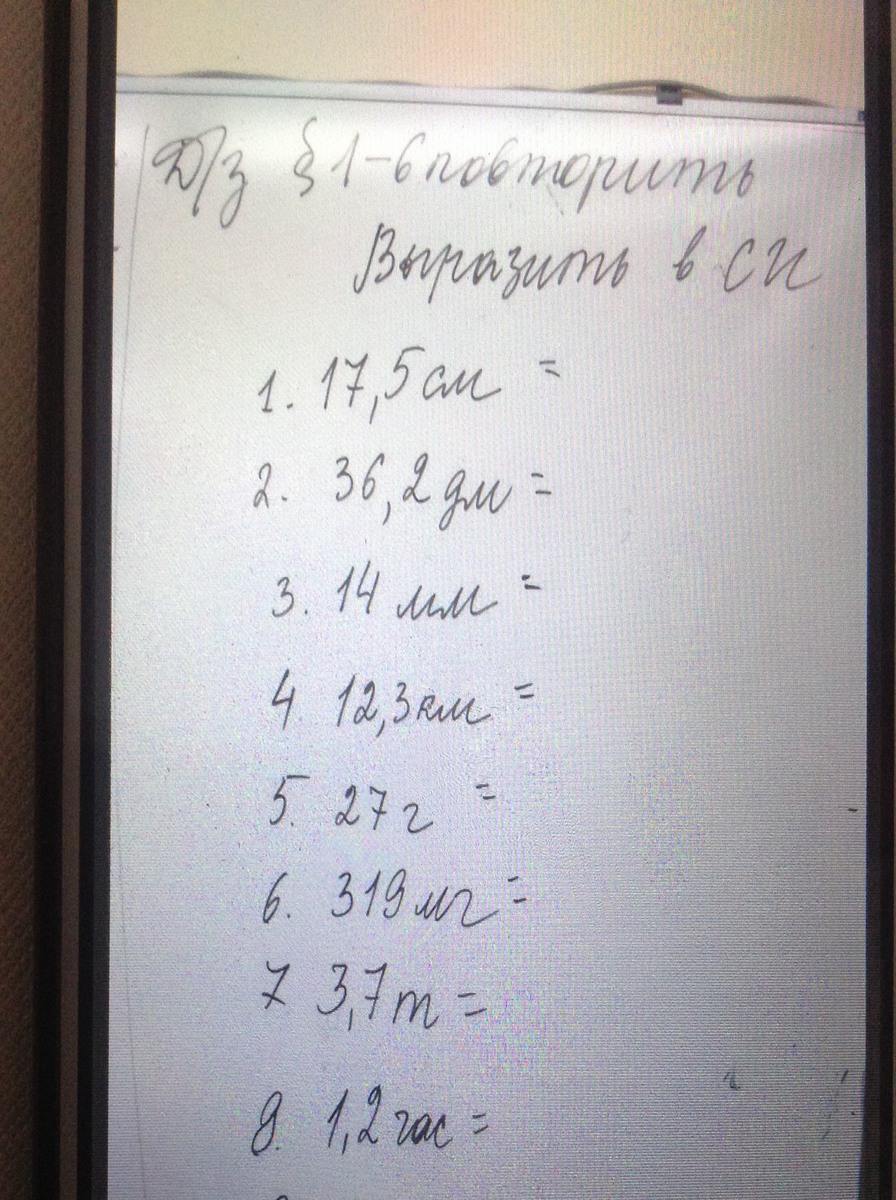 Д/з § 1-6 повторить
Выразить в СИ
1. 17,5 см =
2. 36,2 дм =
3. 14 мм =
4 12,3 км =
5. 27 г =
6. 319 мг =
7 3,7 т =
8. 1,2 час =